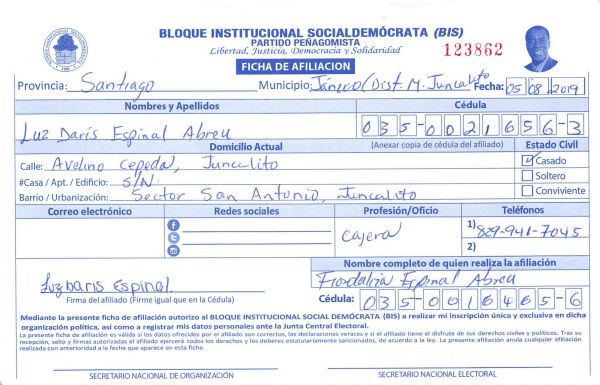 BLOQUE INSTITUCIONAL SOCIALDEMÓCRATA (BIS)
PARTIDO PEÑAGOMISTA
Libertad, Justicia, Democracia y Solidaridad
FICHA DE AFILIACION
123862
Provincia: Santiago Municipio: Jánico/Dist. M. Juncalito Fecha: 05 08 2019
Nombres y Apellidos Cédula
Luz Daris Espinal Abreu 035-0021656-3
Domicilio Actual (Anexar copia de cédula del afiliado) Estado Civil
Calle: Avelino Cepeda, Juncalito Casado
#Casa / Apt. / Edificio: S/N. Soltero
Barrio / Urbanización: Sector San Antonio, Juncalito Conviviente
Correo electrónico Redes sociales Profesión/Oficio Teléfonos
Cajera 1) 829-941-7045
2)
Nombre completo de quien realiza la afiliación
Luz Daris Espinal. Espinal Abreu
Firma del afiliado (Firme igual que en la Cédula) Cédula: 035-0016465-6
Mediante la presente ficha de afiliación autorizo al BLOQUE INSTITUCIONAL SOCIAL DEMÓCRATA (BIS) a realizar mi inscripción única y exclusiva en dicha
organización política, así como a registrar mis datos personales ante la Junta Central Electoral.
La presente ficha de afiliación es válida si los datos ofrecidos por el afiliado son correctos, las declaraciones veraces y si el afiliado tiene el disfrute de sus derechos civiles y políticos. Tras su
recepción, sello y firmas autorizadas el afiliado ejercerá todos los derechos y los deberes estatutariamente sancionados, de acuerdo a la ley. La presente afiliación anula cualquier afiliación
realizada con anterioridad a la fecha que aparece en esta ficha.
SECRETARIO NACIONAL DE ORGANIZACIÓN SECRETARIO NACIONAL ELECTORAL